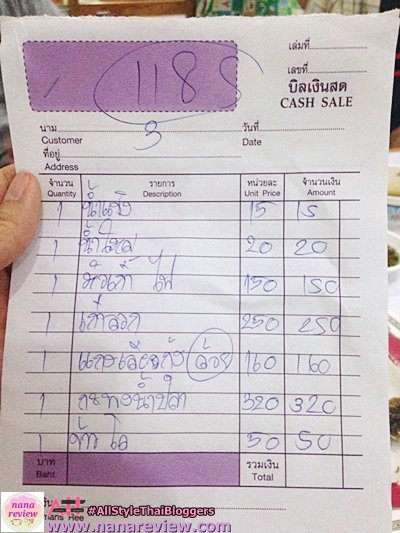 1188
เล่มที่
เลขที่
บิลเงินสด
CASH SALE
นาม 3 วันที่
Customer Date
ที่อยู่
Address
จำนวน รายการ หน่วยละ จำนวนเงิน
Quantity Description Unit Price Amount
1 น้ำแข็ง 15 15
1 น้ำเปล่า 20 20
1 150 150
1 250 250
1 แกงเหลือง 160 160
1 กะพงน้ำปลา 320 320
1 50 50
บาท รวมเงิน
Baht. Total
nana
review
#AllStyleThaiBloggers
www.nanareview.com